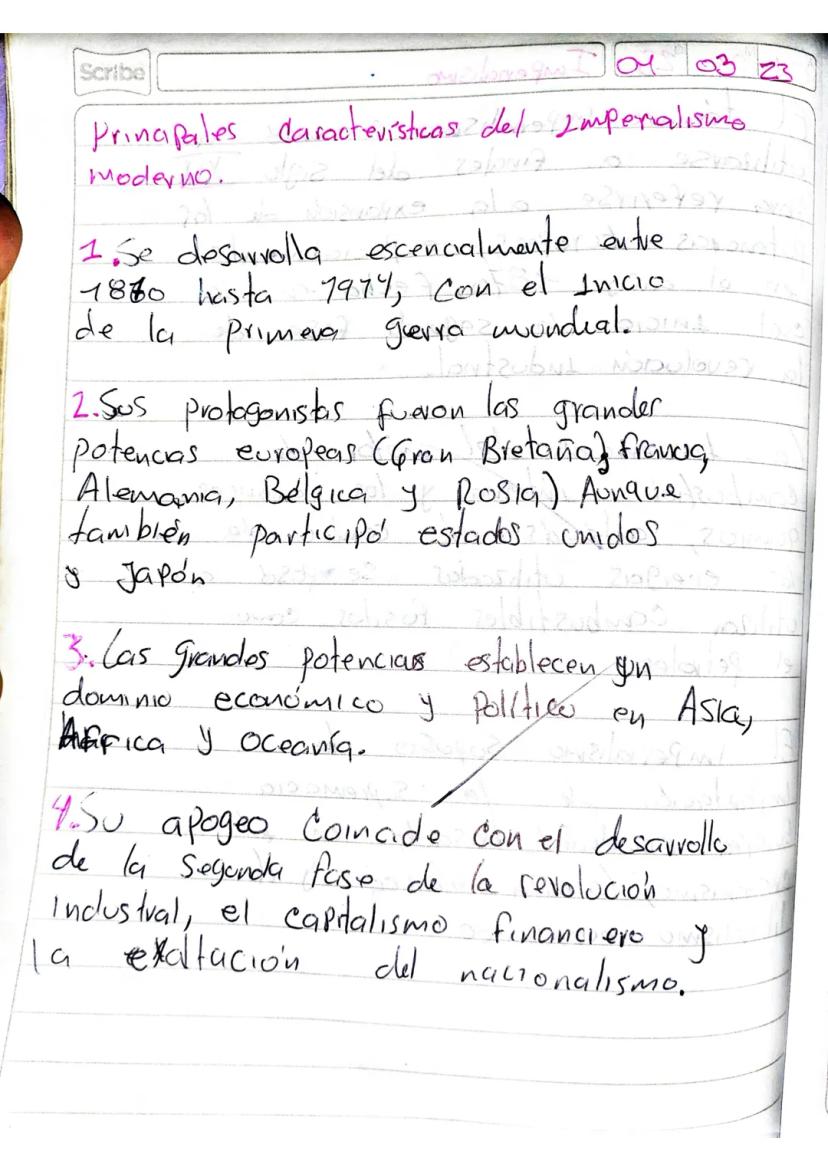 Scribe
04 03 23
Principales Características del Imperialismo
moderno.
1. Se desarrolla escencialmente entre
1870 hasta 1914, con el Inicio
de la Primera guerra mundial.
2. Sus protagonistas fueron las grandes
potencias europeas (Gran Bretaña, francia,
Alemania, Bélgica y Rusia) Aunque
también participó estados unidos
y Japón
3. Las grandes potencias establecen un
dominio económico y Político en Asia,
Africa y Oceanía.
4. Su apogeo Coincide con el desarrollo
de la Segunda fase de la revolución
Industrial, el capitalismo financiero y
la exaltación del nacionalismo.